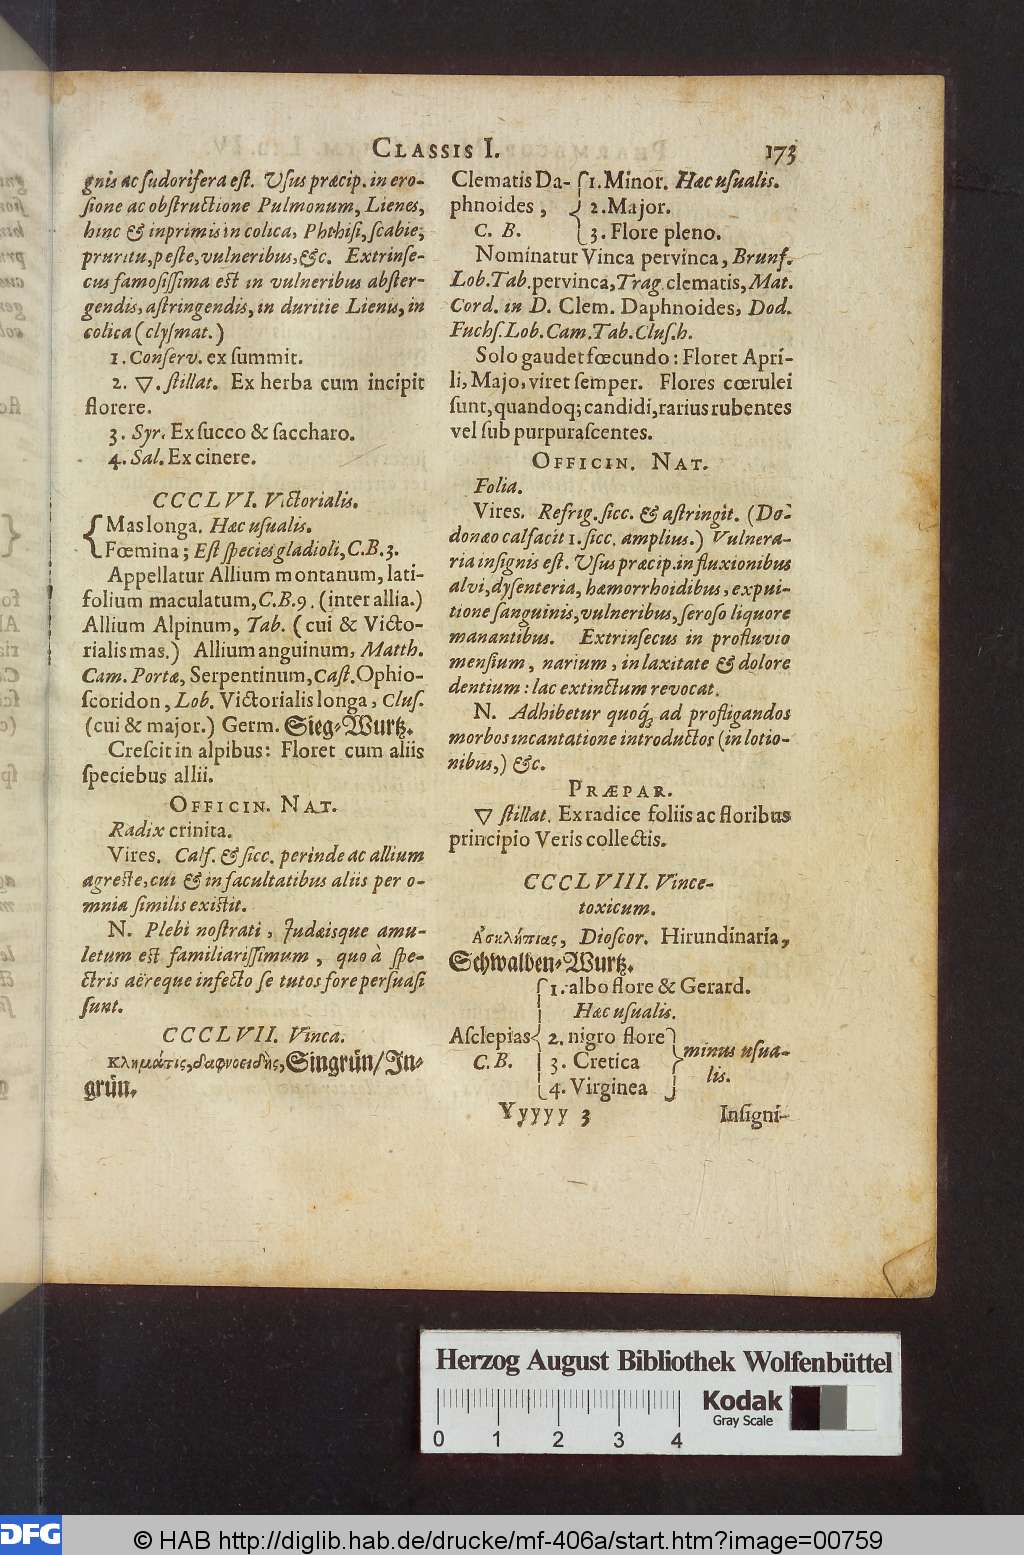 CLASSIS I.
173
gnis ac ſudorifera eſt. Uſus præcip. in ero-
ſione ac obſtructione Pulmonum, Lienes,
hinc & inprimis in colica, Phthiſi, ſcabie,
pruritu, peſte, vulneribus, &c. Extrinſe-
cus famoſiſſima eſt in vulneribus abſter-
gendis, aſtringendis, in duritie Lienis, in
colica (clyſmat.)
1. Conſerv. ex ſummit.
2. ▽. ſtillat. Ex herba cum incipit
florere.
3. Syr. Ex ſucco & ſaccharo.
4. Sal. Ex cinere.
CCCLVI. Victorialis.
{ Mas longa. Hæc uſualis.
Fœmina; Eſt ſpecies gladioli, C.B. 3.
Appellatur Allium montanum, lati-
folium maculatum, C.B. 9. (inter allia.)
Allium Alpinum, Tab. (cui & Victo-
rialis mas.) Allium anguinum, Matth.
Cam. Portæ, Serpentinum, Caſt. Ophio-
ſcoridon, Lob. Victorialis longa, Cluſ.
(cui & major.) Germ. Sieg-Wurtz.
Creſcit in alpibus: Floret cum aliis
ſpeciebus allii.
OFFICIN. NAT.
Radix crinita.
Vires. Calf. & ſicc. perinde ac allium
agreſte, cui & in facultatibus aliis per o-
mnia ſimilis exiſtit.
N. Plebi noſtrati, Judæisque amu-
letum eſt familiariſſimum, quo à ſpe-
ctris aëreque infecto ſe tutos fore perſuaſi
ſunt.
CCCLVII. Vinca.
Κλημάτις, δαφνοειδὴς, Singrün/ In-
grün.
Clematis Da- { 1. Minor. Hæc uſualis.
phnoides, 2. Major.
C. B. 3. Flore pleno.
Nominatur Vinca pervinca, Brunf.
Lob. Tab. pervinca, Trag. clematis, Mat.
Cord. in D. Clem. Daphnoides, Dod.
Fuchſ. Lob. Cam. Tab. Cluſ. h.
Solo gaudet fœcundo: Floret Apri-
li, Majo, viret ſemper. Flores cœrulei
ſunt, quandoq; candidi, rarius rubentes
vel ſub purpuraſcentes.
OFFICIN. NAT.
Folia.
Vires. Refrig. ſicc. & aſtringit. (Do-
donæo calfacit 1. ſicc. amplius.) Vulnera-
ria inſignis eſt. Uſus præcip. in fluxionibus
alvi, dyſenteria, hæmorrhoidibus, expui-
tione ſanguinis, vulneribus, ſeroſo liquore
manantibus. Extrinſecus in profluvio
menſium, narium, in laxitate & dolore
dentium: lac extinctum revocat.
N. Adhibetur quoq́; ad profligandos
morbos incantatione introductos (in lotio-
nibus,) &c.
PRÆPAR.
▽ ſtillat. Ex radice foliis ac floribus
principio Veris collectis.
CCCLVIII. Vince-
toxicum.
Ἀσκλήπιας, Dioſcor. Hirundinaria,
Schwalben-Wurtz.
1. albo flore & Gerard.
Hæc uſualis.
Aſclepias { 2. nigro flore
C. B. 3. Cretica } minus uſua-
lis.
4. Virginea
Yyyyy 3
Inſigni-
Herzog August Bibliothek Wolfenbüttel
Kodak
Gray Scale
0 1 2 3 4
DFG
© HAB http://diglib.hab.de/drucke/mf-406a/start.htm?image=00759